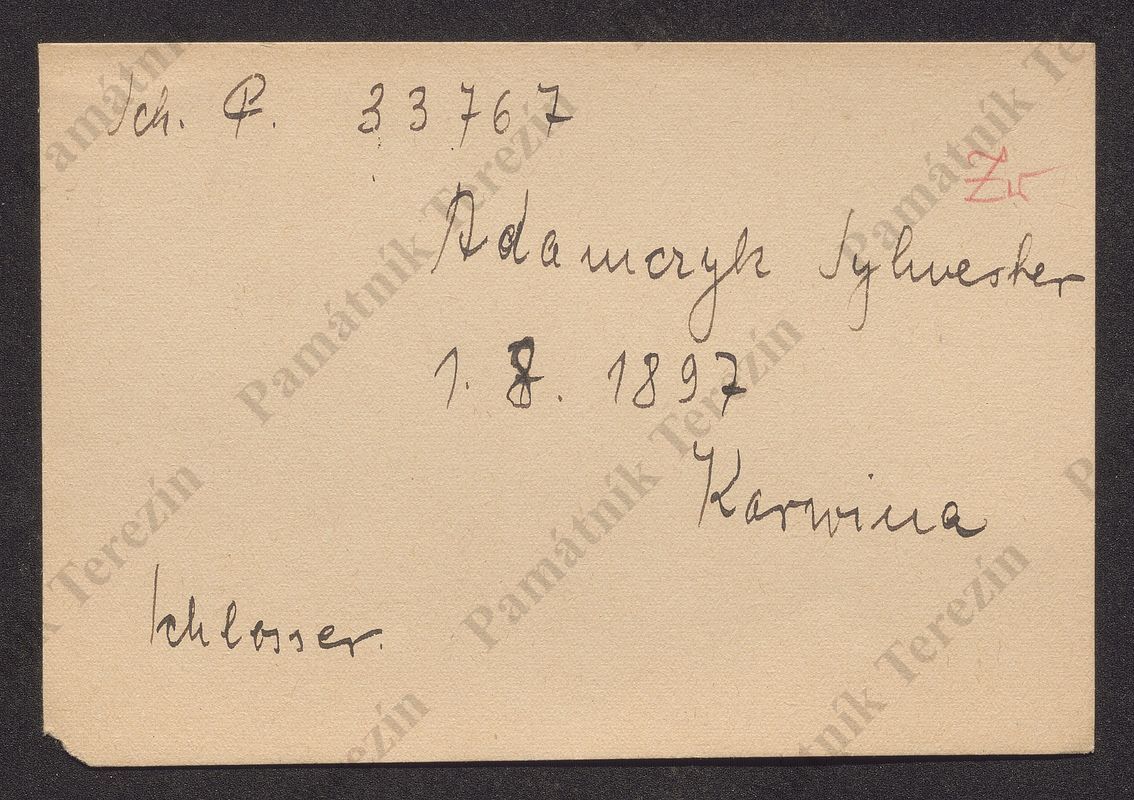 Sch. P. 33767
Zw
Adamczyk Sylwester
1. 8. 1897
Karwina
Schlosser.
Památník Terezín